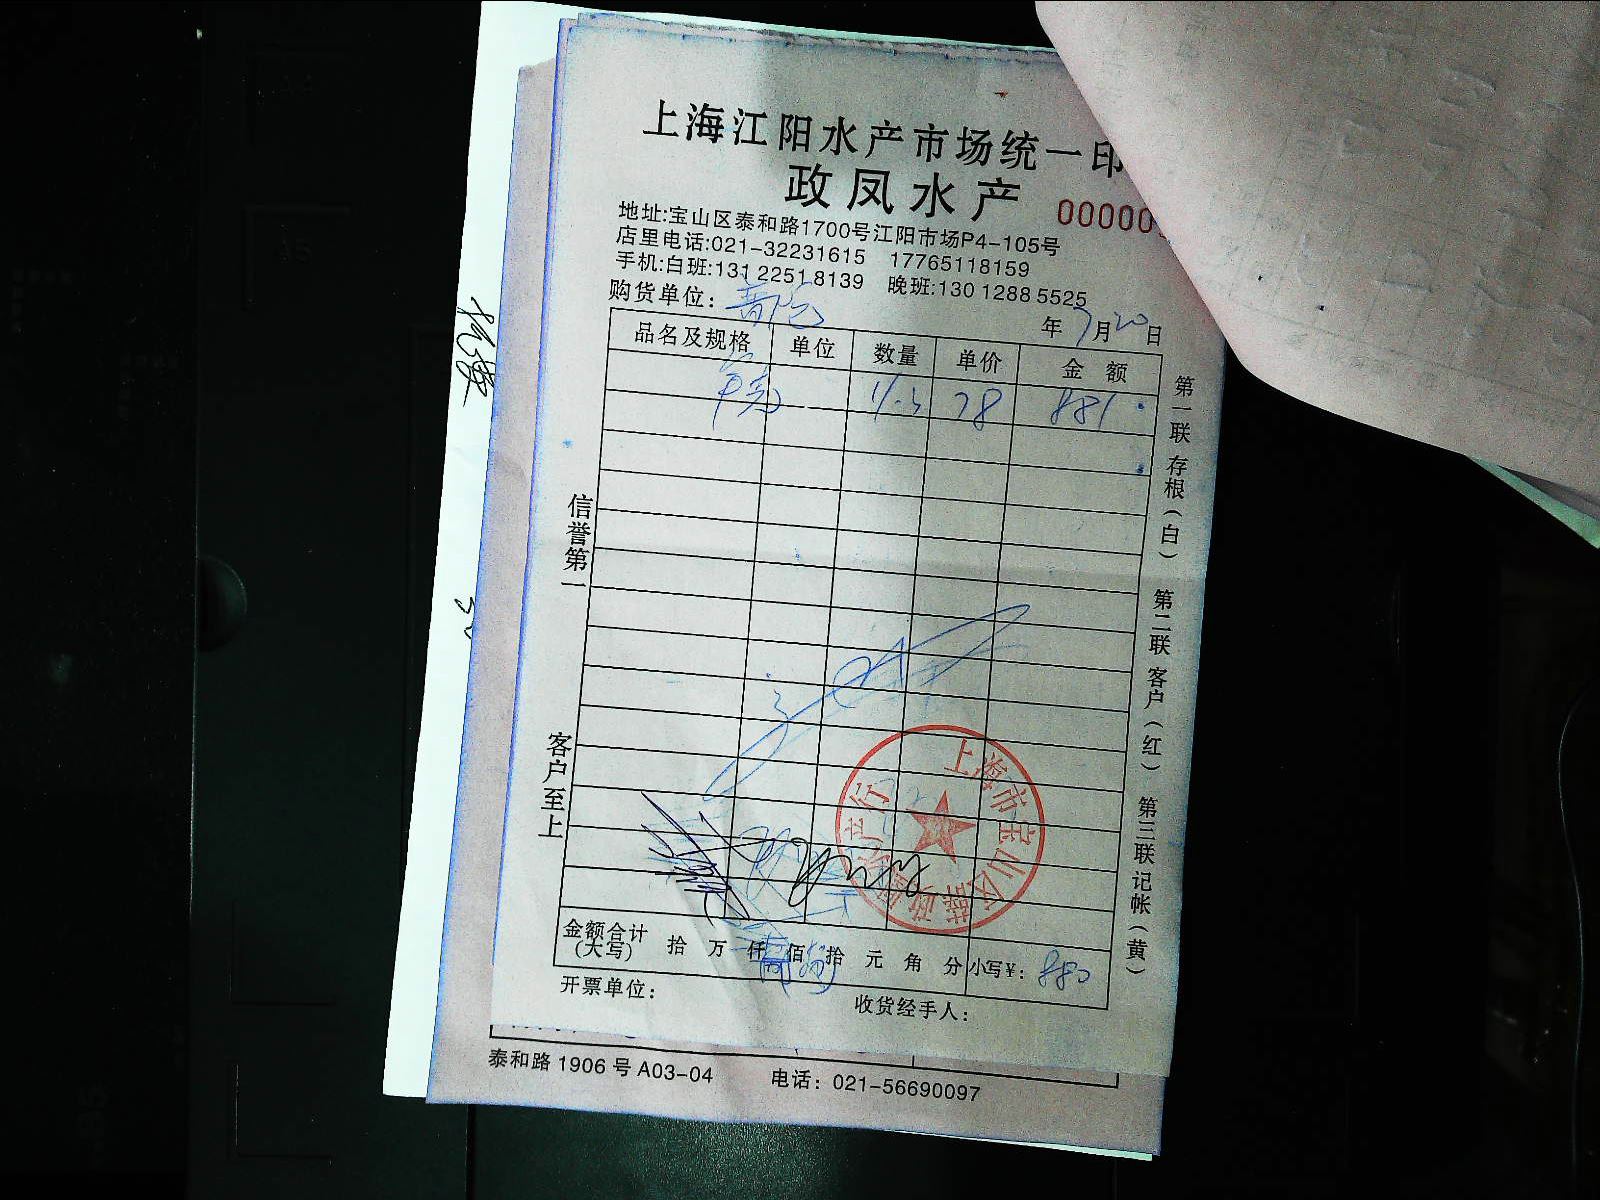 上海江阳水产市场统一印
政凤水产 00000
地址:宝山区泰和路1700号江阳市场P4-105号
店里电话:021-32231615 17765118159
手机:白班:131 2251 8139 晚班:130 1288 5525
购货单位:
年 7 月 20 日
品名及规格 单位 数量 单价 金 额
11.3 78 881
信誉第一
客户至上
第一联 存根(白) 第二联 客户(红) 第三联 记帐(黄)
上海市宝山区
金额合计(大写) 拾 万 仟 佰 拾 元 角 分 小写¥: 880
开票单位: 收货经手人:
泰和路 1906 号 A03-04 电话: 021-56690097